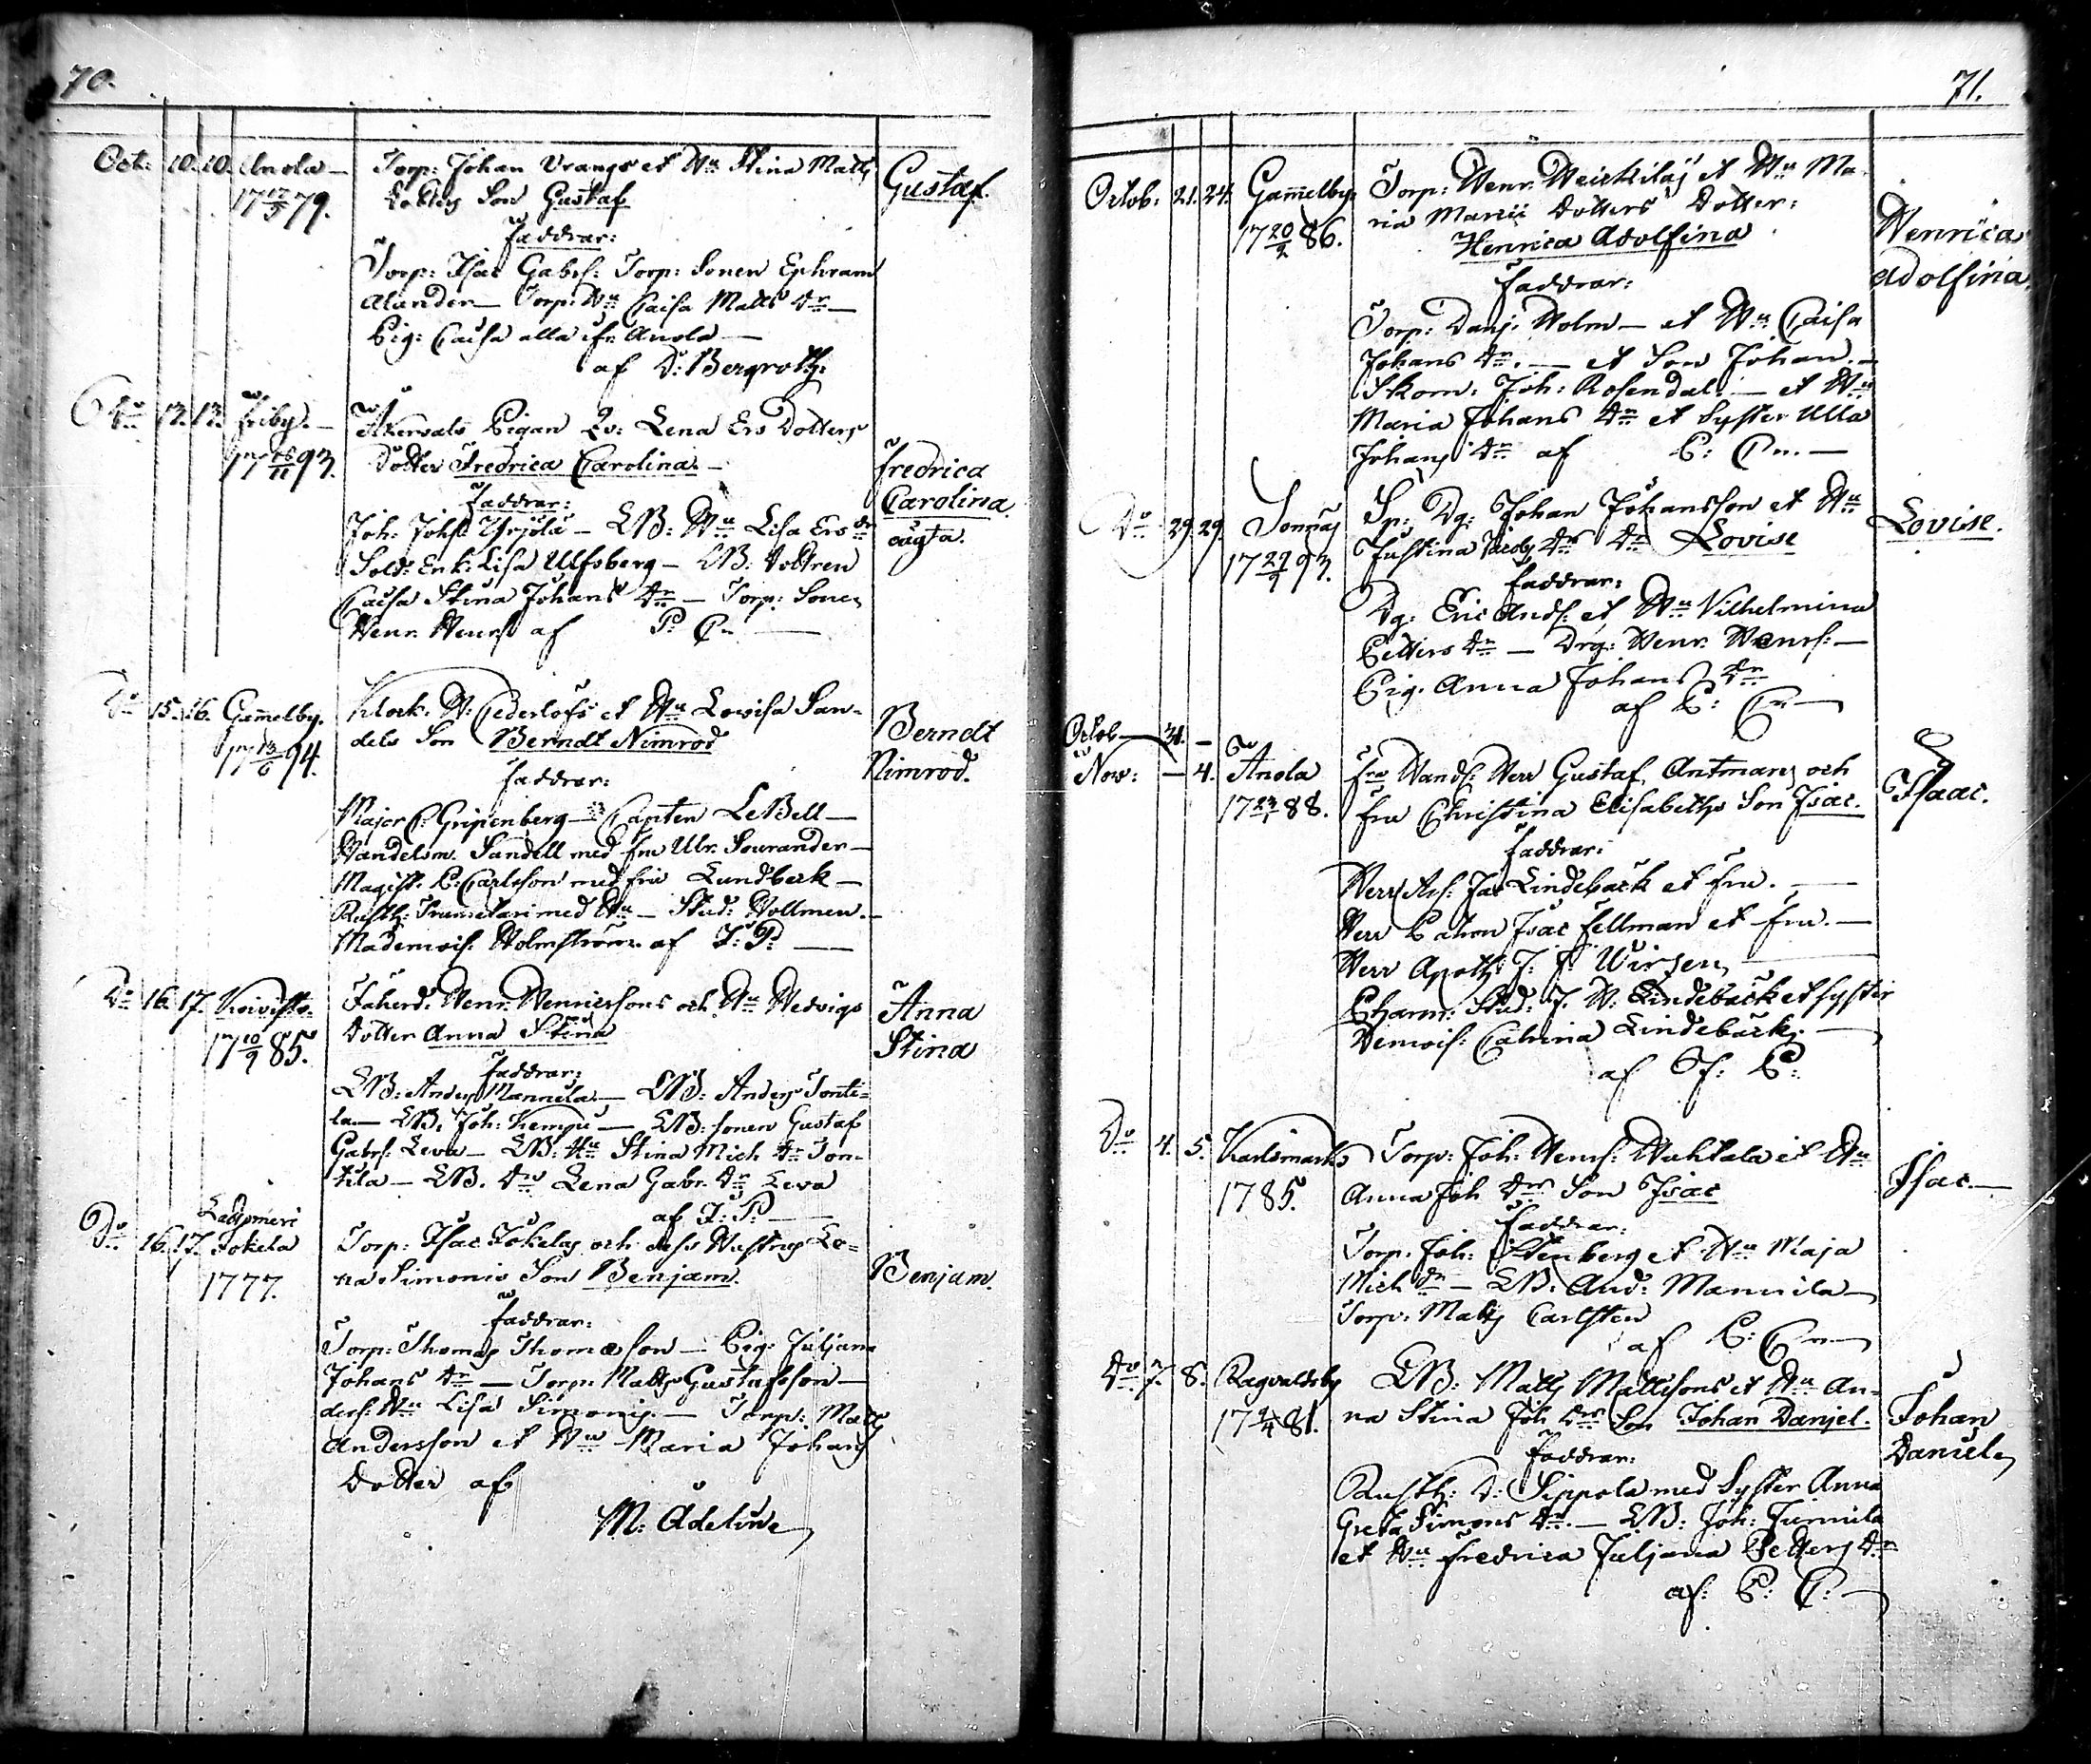 70.
Oct: 10. 10. Anola — Torp: Johan Vrangs et Hu Stina Matts
17 12/5 79. Dotters Son Gustaf Gustaf.
Faddrar:
Torp: Isac Gabrs: Torp: Sonen Ephram
Alander — Torp: Hu Caisa Matts dr —
Pig: Caisa alla ifr. Anola —
af D: Bergroth:
Do 12. 13. Friby. — Pigan Lena Ers Dotters
93. Dotter Fredrica Carolina. — Fredrica
Faddrar: Carolina
Joh: Johs: Yrjola — LB: Hu Lisa Ers dr
Sold: Enk: Lisa Ulfsberg — LB: Dottren
Caisa Stina Johans dr — Torp: Sonen
Henr. Henrs: af P: Cn —
Do 15. 16. Gamelby. Klock. H: Cederlöfs et Hu Lovisa San-
17 13/6 94. dels Son Berndt Nimrod Berndt
Nimrod.
Faddrar:
Major C: Gripenberg — Capten LeBell —
Handelsm. Sandell med fru Ulr. Sourander —
Magist. P: Carlsson med fru Lundbeck —
Rusth: med Hu — Stud: Hollmen. —
Mademois: Holmström af I: P: —
Do 16. 17. Koivisto. Henr. Henricssons och Hu Hedvigs
17 10/9 85. Dotter Anna Stina Anna
Stina
Faddrar:
LB: Anders Mannila — LB: Anders Tonti-
la — LB: Joh: Kemppi — LB: Sonen Gustaf
Gabrs: Leva — LB: Hu Stina Mich dr Ton-
tila — LB. dr Lena Gabr. dr Leva
af I: P: —
Do 16. 17. Jokela Torp: Isac Jokelas och dess Hustrus Le-
1777. na Simonis Son Benjam. Benjam.
Faddrar:
Torp: Thomas Thomasson — Pig: Juljana
Johans dr — Torp: Matts Gustafsson —
dess: Hu Lisa Simonis. — Torp: Matts
Andersson et Hu Maria Johans
Dotter af
M: Adelin
71.
Octob: 21. 24. Gamelby. Torp: Henr. Heickiläs et Hu Ma-
17 20/2 86. ria Dotters Dotter:
Henrica Adolfina Henrica
Adolfina.
Faddrar:
Torp: Danj: Holm — et Hu Caisa
Johans dr. — et Son Johan. —
Skom: Joh: Rosendal. — et Hu
Maria Johans dr et Syster Ulla
Johans dr af P: Cn. —
Do 29. 29. Sonnäs Sp: Dg: Johan Johansson et Hu
17 29/9 93. Justina Jacobs drs dr Lovise Lovise.
Faddrar:
Dg: Eric Ands: et Hu Vilhelmina
Petters dr — Drg: Henr. Henrs: —
Pig. Anna Johans dr
af P: Cn —
Octob — 31. —
Nov: — 4. Anola Handl: Herr Gustaf Antmans och
17 23/1 88. fru Christina Elisabeths Son Isac. Isaac.
Faddrar:
Herr Jac Lindebäck et fru. —
Herr Isac Fellman et fru. —
Herr Apoth: J: F: Wirzen,
Stud: J. H: Lindebäck et syster
Demois: Catrina Lindebäck. —
af P:
Do 4. 5. Karlsmarks Torp: Joh: Henrs: Huhtala et Hu
1785. Anna Joh drs Son Isac Isac. —
Faddrar:
Torp. Joh: Stenberg et Hu Maja
Mich dr — LB: And: Mannila —
Torp: Matts Carlsten
af P: Cn —
Do 7. 8. Ragvaldsby LB: Matts Mattssons et Hu An-
17 9/4 81. na Stina Joh drs Son Johan Danjel. Johan
Daniel
Faddrar:
Rusth: D: Sippola med Syster Anna
Greta Simons dr. — LB: Joh:
et Hu Fredrica Juljana Petters dr
af: P: C: —